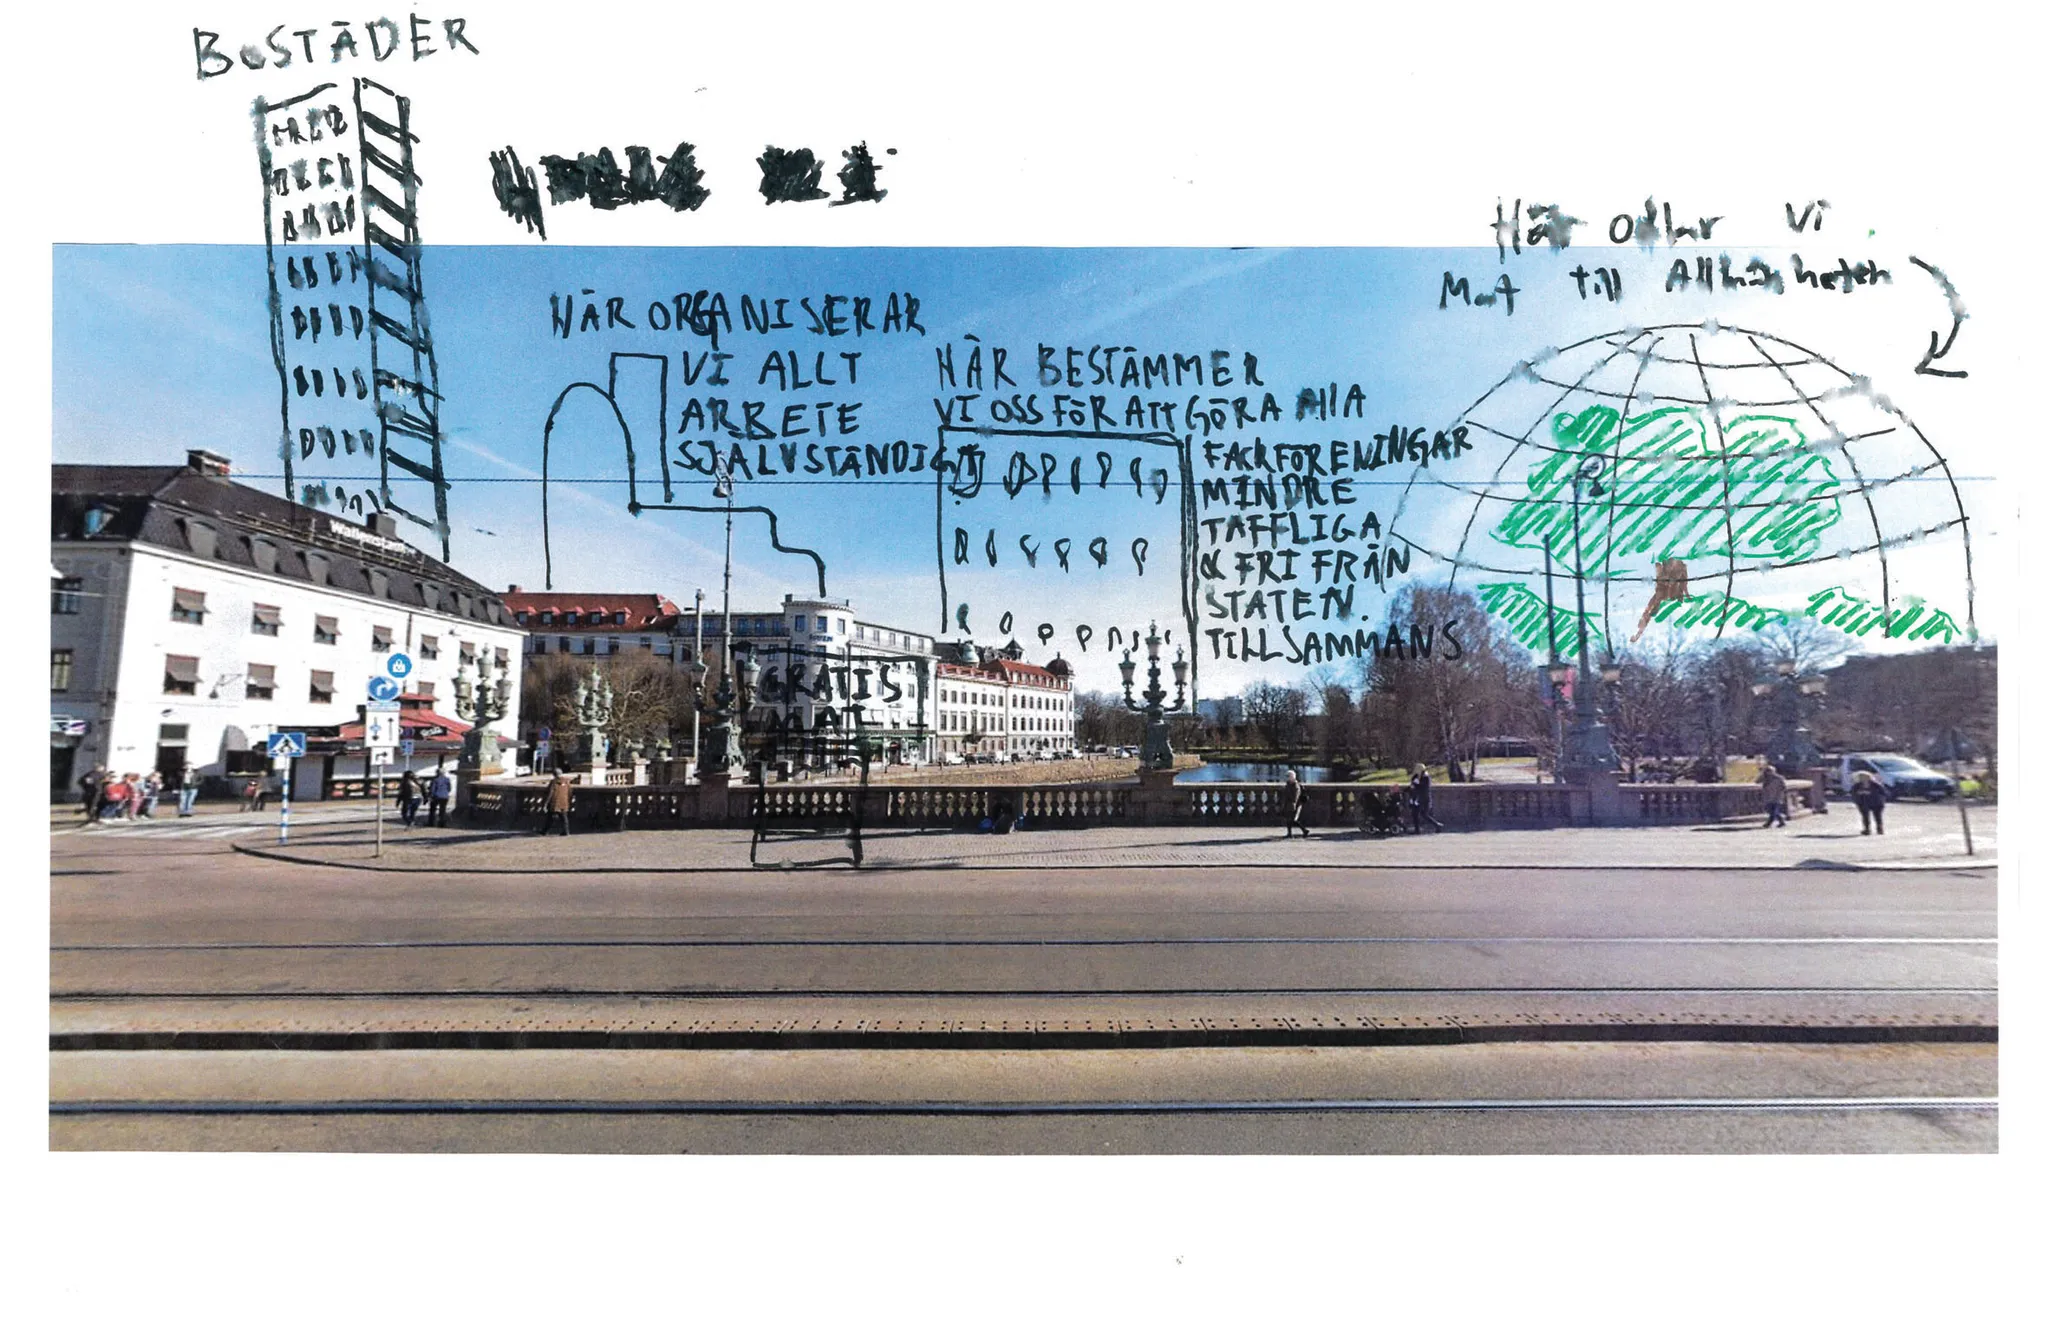 BOSTÄDER
HÄR ORGANISERAR
VI ALLT
ARBETE
SJÄLVSTÄNDIGT
HÄR BESTÄMMER
VI OSS FÖR ATT GÖRA AllA
FACKFÖRENINGAR
MINDRE
TAFFLIGA
& FRI FRÅN
STATEN.
TILLSAMMANS
Här odlar Vi
Mat till Allmänheten
Wallenstam
GRATIS
MAT